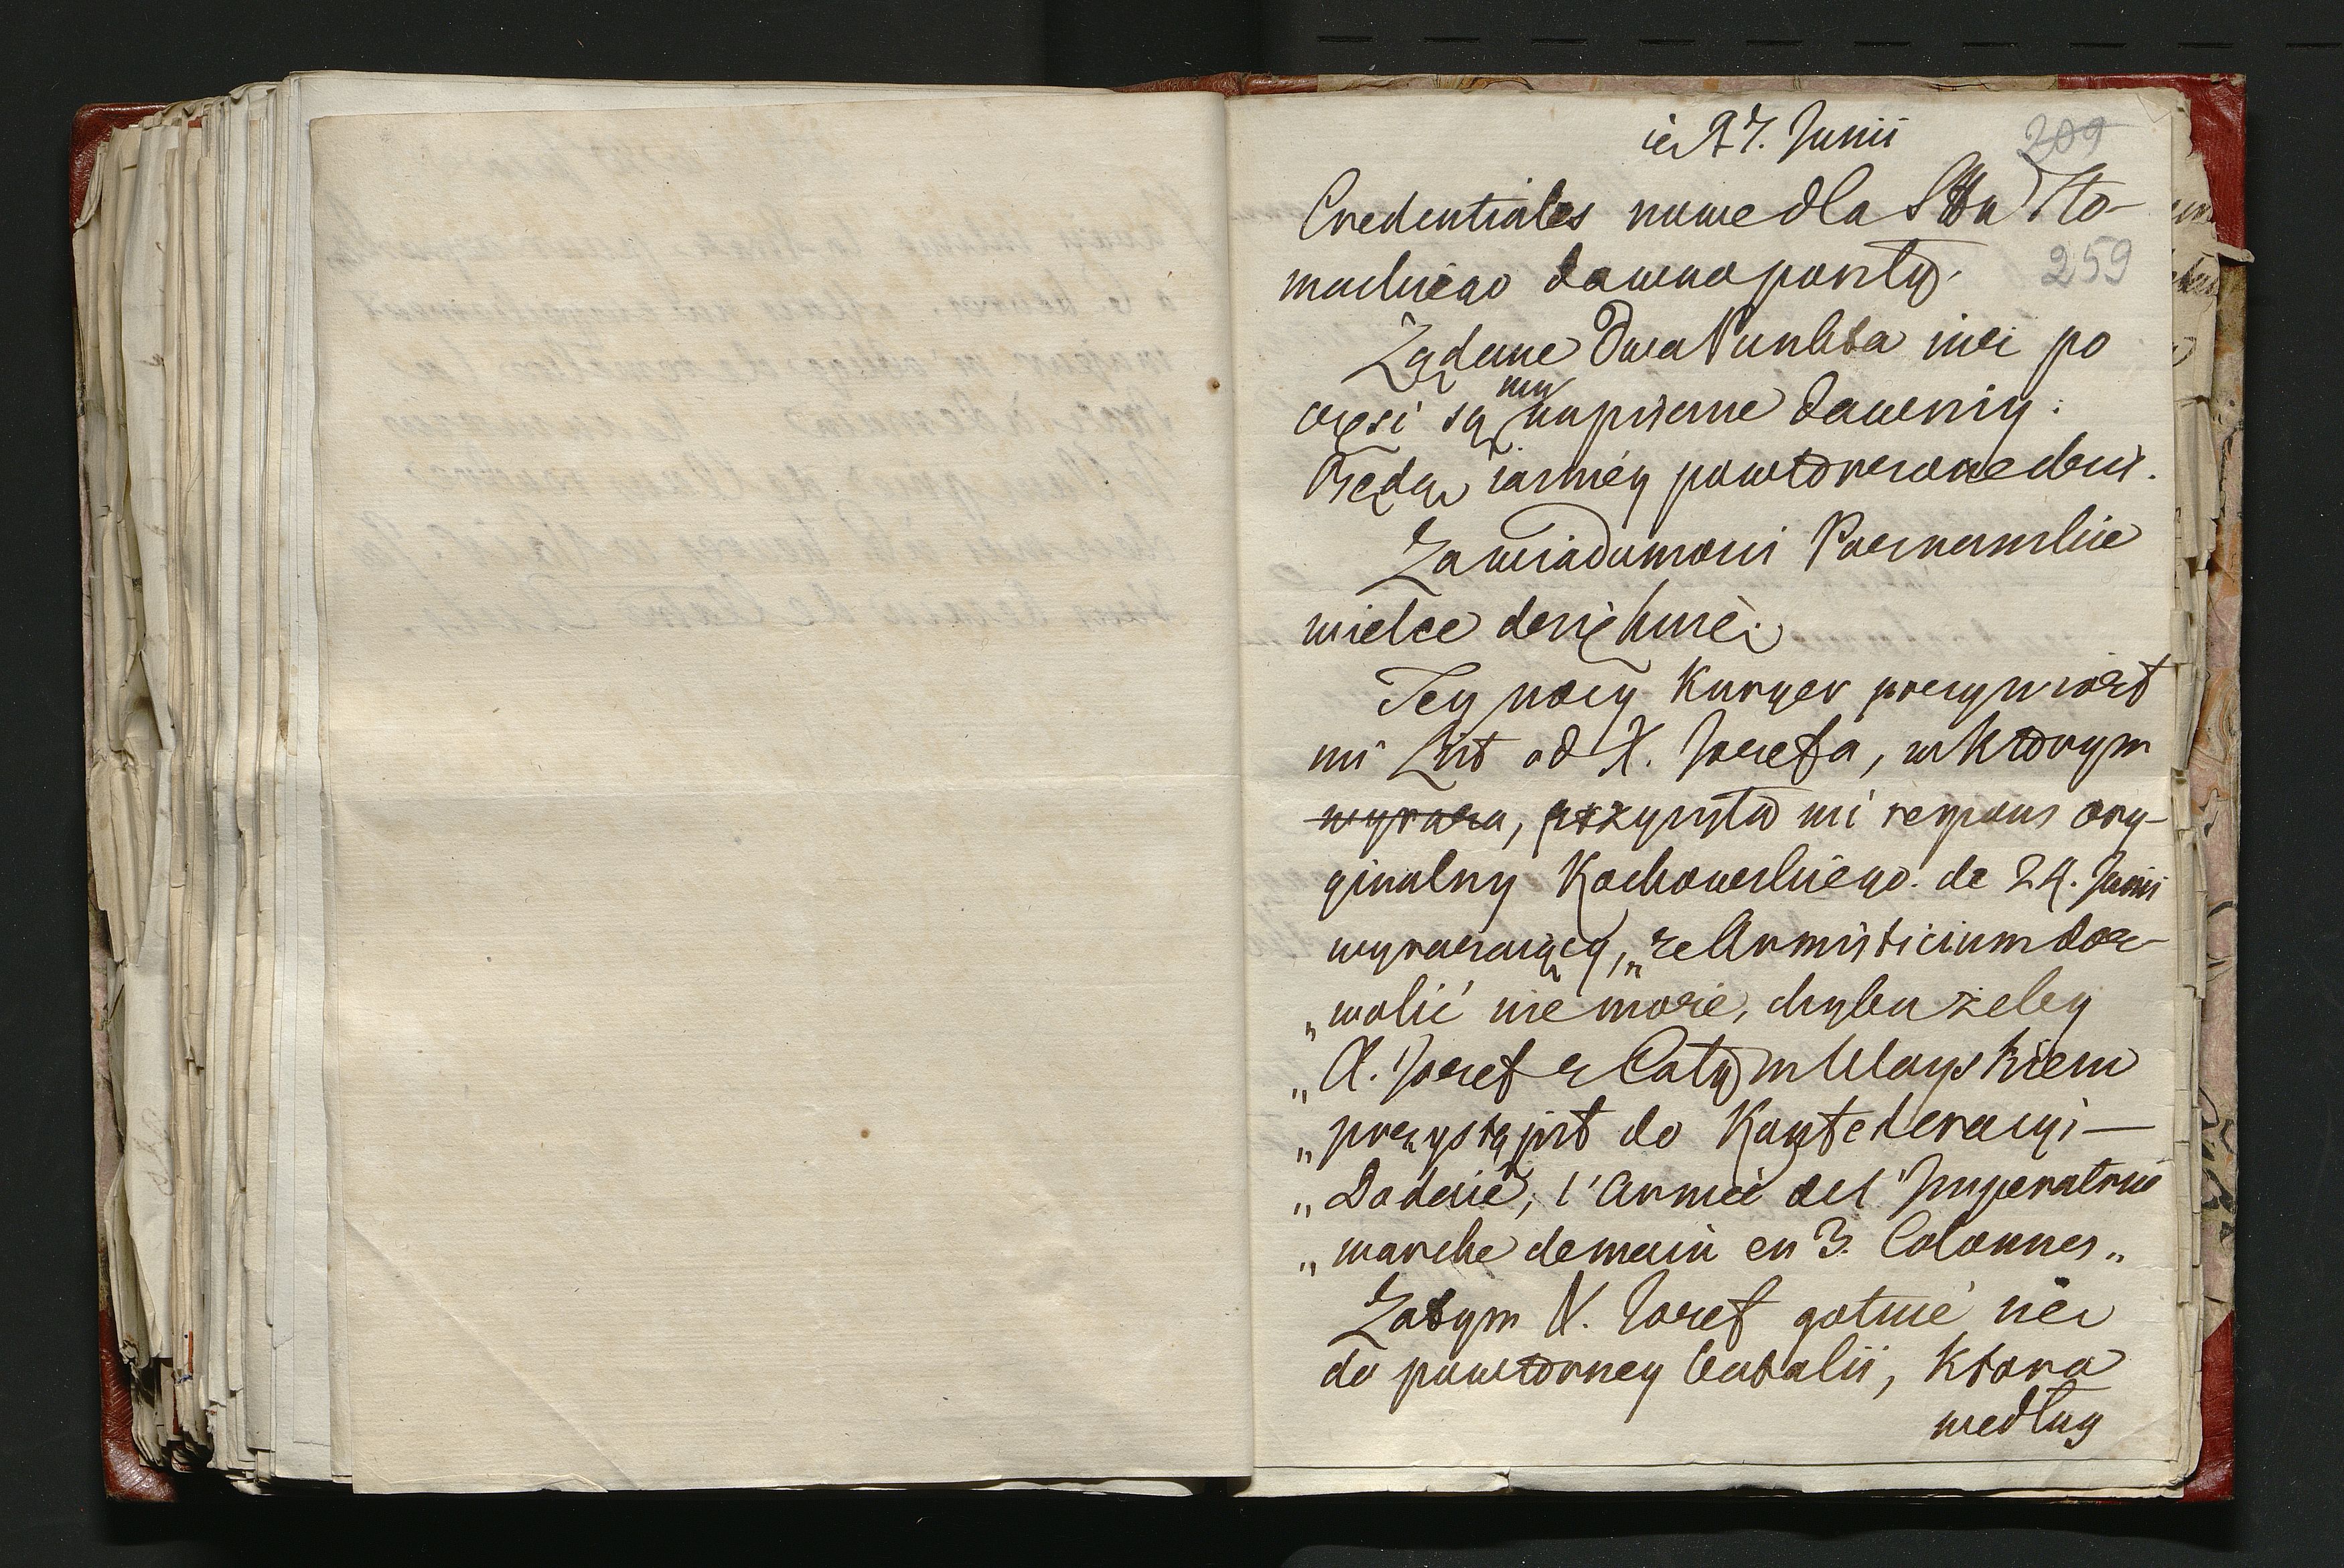 27. Junii
209
Credentiales nowe dla Sta
machiego dawno poszły.
259
Żądane Dwa Punkta iuż po
części są mu napisane dawniey:
Będą iaśniey powtorzone dziś.
Za wiadomości Poznanskie
wielce dziękuię.
Tey nocy Kuryer przyniosł
mi List od X. Jozefa, w Ktorym
wyraza, przysyła mi respons ory-
ginalny Kochowskiego de 24. Junii
wyrazaiący, „ze Armisticium doz-
„wolić nie może, chyba żeby
„X. Jozef z Całym Woyskiem
„przystąpił do Konfederacyi—
„Dodaie, l'Armée de l'Imperatrice
„marche demain en 3. Colonnes„
Zatym X. Jozef gotuie się
do powtorney batalii, Ktora
według